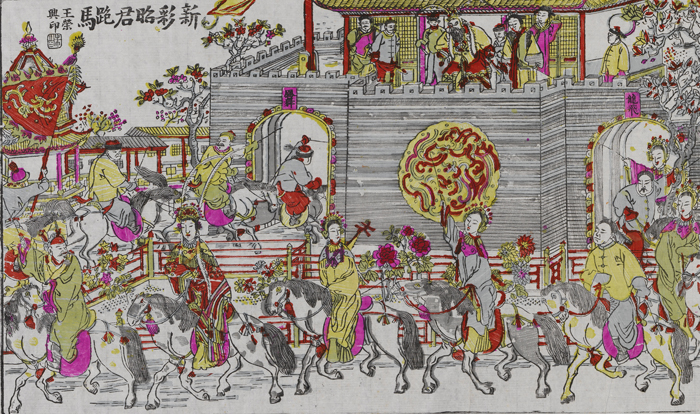 新彩昭君跑馬
王榮
興印